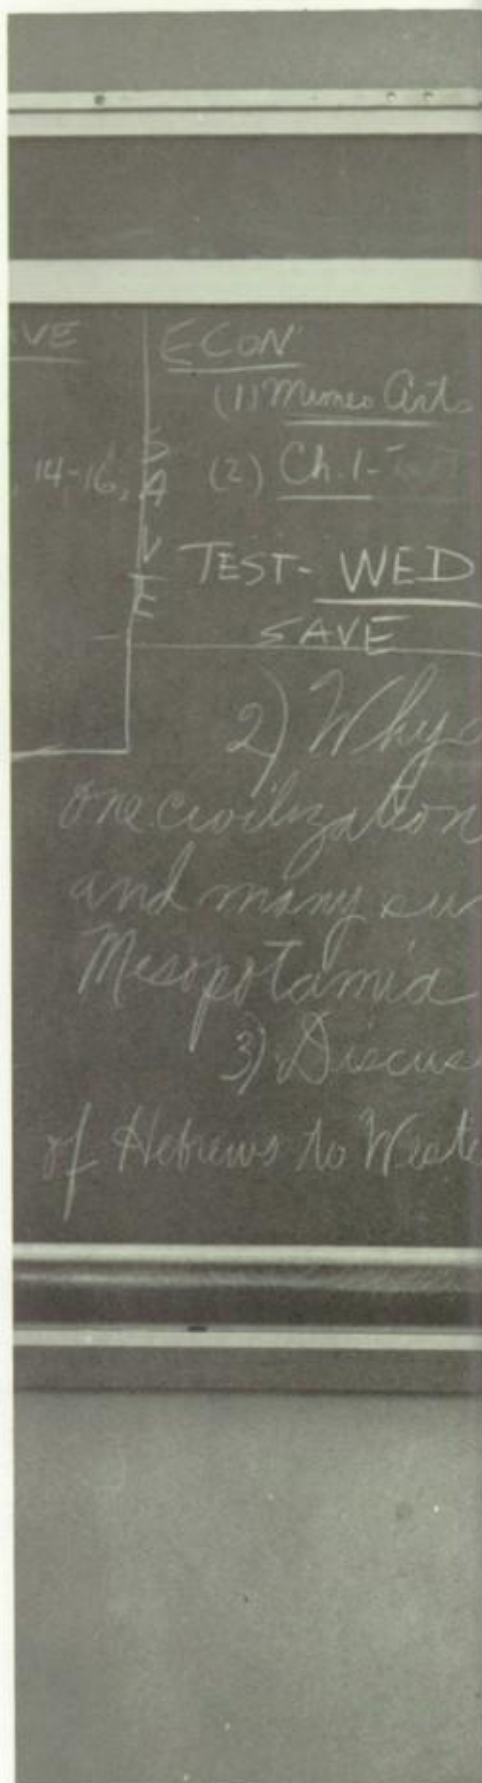 VE
14-16,
SAVE
ECON
(1) Mimeo Arts
(2) Ch. 1-Text
TEST- WED
SAVE
2) Why
one civilization
and many su
Mesopotamia
3) Discus
of Hebrews to Weste